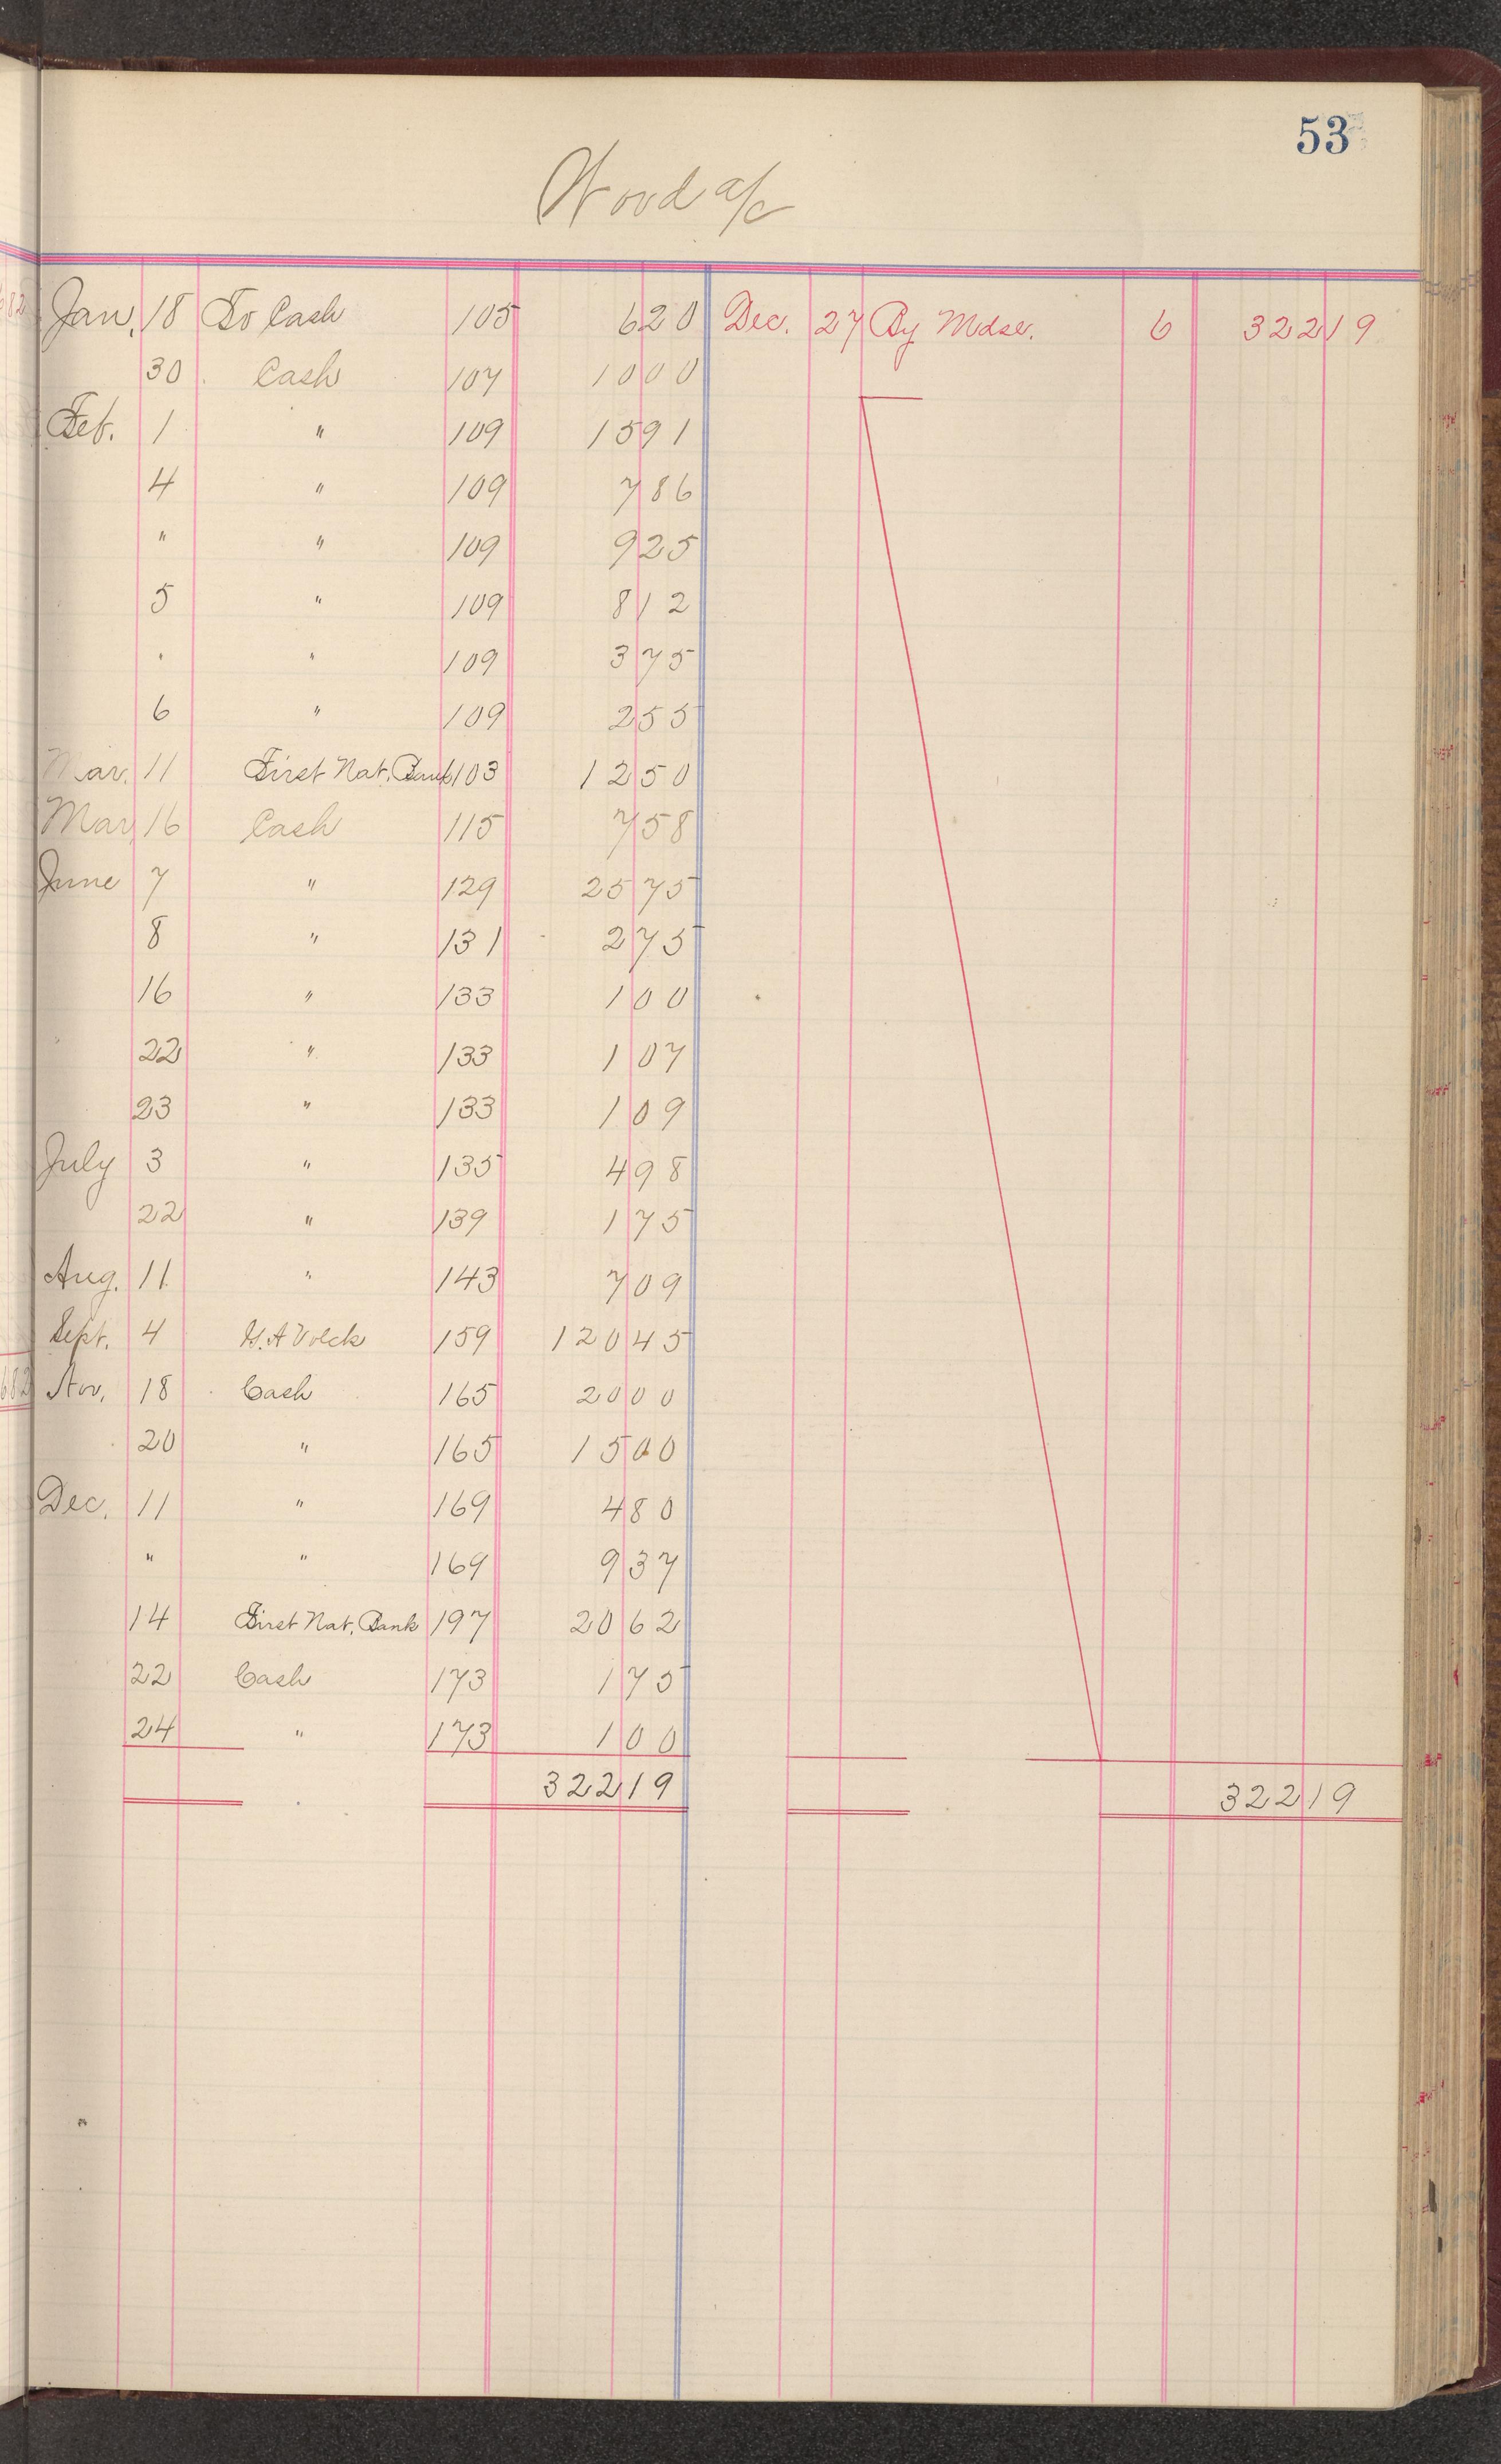 53
Wood a/c
Jan. 18 To Cash 105 6 20 Dec. 27 By Mdse. 6 322 19
30 Cash 107 10 00
Feb. 1 " 109 15 91
4 " 109 7 86
" " 109 9 25
5 " 109 8 12
" " 109 3 75
6 " 109 2 55
Mar. 11 First Nat. Bank 103 12 50
Mar. 16 Cash 115 7 58
June 7 " 129 25 75
8 " 131 2 75
16 " 133 1 00
22 " 133 1 07
23 " 133 1 09
July 3 " 135 4 98
22 " 139 1 75
Aug. 11 " 143 7 09
Sept. 4 G. A Volck 159 120 45
Nov. 18 Cash 165 20 00
20 " 165 15 00
Dec. 11 " 169 4 80
" " 169 9 37
14 First Nat. Bank 197 20 62
22 Cash 173 1 75
24 " 173 1 00
322 19 322 19